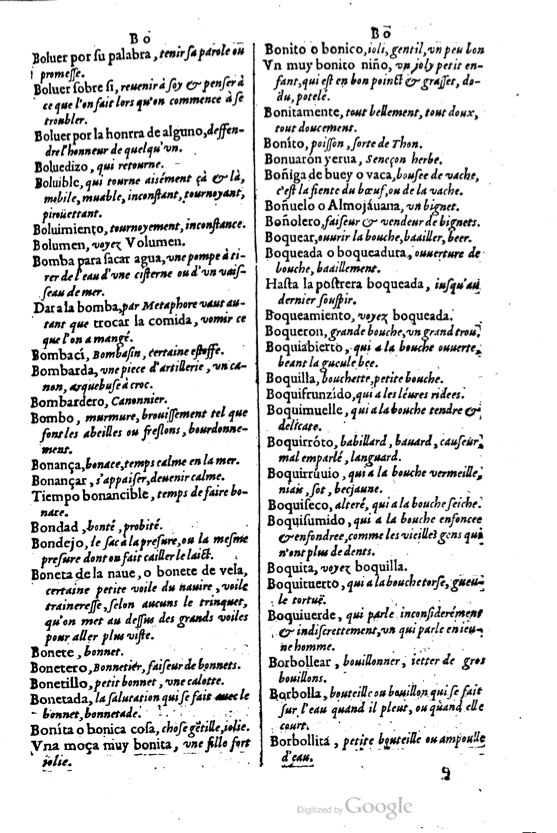 B O
Boluer por su palabra, tenir sa parole ou
promesse.
Boluer sobre si, reuenir à soy & penser à
ce que l'on fait lors qu'on commence à se
troubler.
Boluer por la honrra de alguno, deffen-
dre l'honneur de quelqu'vn.
Boluedizo, qui retourne.
Boluible, qui tourne aisément çà & là,
mobile, muable, inconstant, tournoyant,
piroüettant.
Boluimiento, tournoyement, inconstance.
Bolumen, voyez Volumen.
Bomba para sacar agua, vne pompe à ti-
rer de l'eau d'vne cisterne ou d'vn vais-
seau de mer.
Dar a la bomba, par Metaphore vaut au-
tant que trocar la comida, vomir ce
que l'on a mangé.
Bombací, Bombasin, certaine estoffe.
Bombarda, vne piece d'artillerie, vn ca-
non, arquebuse à croc.
Bombardero, Canonnier.
Bombo, murmure, brouissement tel que
font les abeilles ou freslons, bourdonne-
ment.
Bonança, bonace, temps calme en la mer.
Bonançar, s'appaiser, deuenir calme.
Tiempo bonancible, temps de faire bo-
nace.
Bondad, bonté, probité.
Bondejo, le sac à la presure, ou la mesme
presure dont on fait cailler le laict.
Boneta de la naue, o bonete de vela,
certaine petite voile du nauire, voile
traineresse, selon aucuns le trinquet,
qu'on met au dessus des grands voiles
pour aller plus viste.
Bonete, bonnet.
Bonetero, Bonnetier, faiseur de bonnets.
Bonetillo, petit bonnet, vne calotte.
Bonetada, la salutation qui se fait auec le
bonnet, bonnetade.
Boníta o bonica cosa, chose gẽtille, iolie.
Vna moça muy bonita, vne fille fort
iolie.
B O
Bonito o bonico, ioli, gentil, vn peu bon
Vn muy bonito niño, vn joly petit en-
fant, qui est en bon poinct & grasset, do-
du, potelé.
Bonitamente, tout bellement, tout doux,
tout doucement.
Boníto, poisson, sorte de Thon.
Bonuarón yerua, Sençcon herbe.
Boñiga de buey o vaca, bousee de vache,
c'est la fiente du bœuf, ou de la vache.
Boñuelo o Almojáuana, vn bignet.
Boñolero, faiseur & vendeur de bignets.
Boquear, ouurir la bouche, baailler, beer.
Boqueada o boqueadura, ouuerture de
bouche, baaillement.
Hasta la postrera boqueada, iusqu'au
dernier souspir.
Boqueamiento, voyez boqueada.
Boqueron, grande bouche, vn grand trou.
Boquiabierto, qui a la bouche ouuerte,
beant la gueule bee.
Boquilla, bouchette, petite bouche.
Boquifrunzído, qui a les léures ridees.
Boquimuelle, qui a la bouche tendre &
delicate.
Boquirróto, babillard, bauard, causeur,
mal emparlé, languard.
Boquirrúuio, qui a la bouche vermeille,
niais, sot, becjaune.
Boquiseco, alteré, qui a la bouche seiche.
Boquisumido, qui a la bouche enfoncee
& enfondree, comme les vieilles gens qui
n'ont plus de dents.
Boquita, voyez boquilla.
Boquituerto, qui a la bouche torse, gueu-
le tortuë.
Boquiuerde, qui parle inconsiderément
& indiscrettement, vn qui parle en ieu-
ne homme.
Borbollear, bouillonner, ietter de gros
bouillons.
Borbolla, bouteille ou bouillon qui se fait
sur l'eau quand il pleut, ou quand elle
court.
Borbollitá, petite bouteille ou ampoulle
d'eau.
Digitized by Google